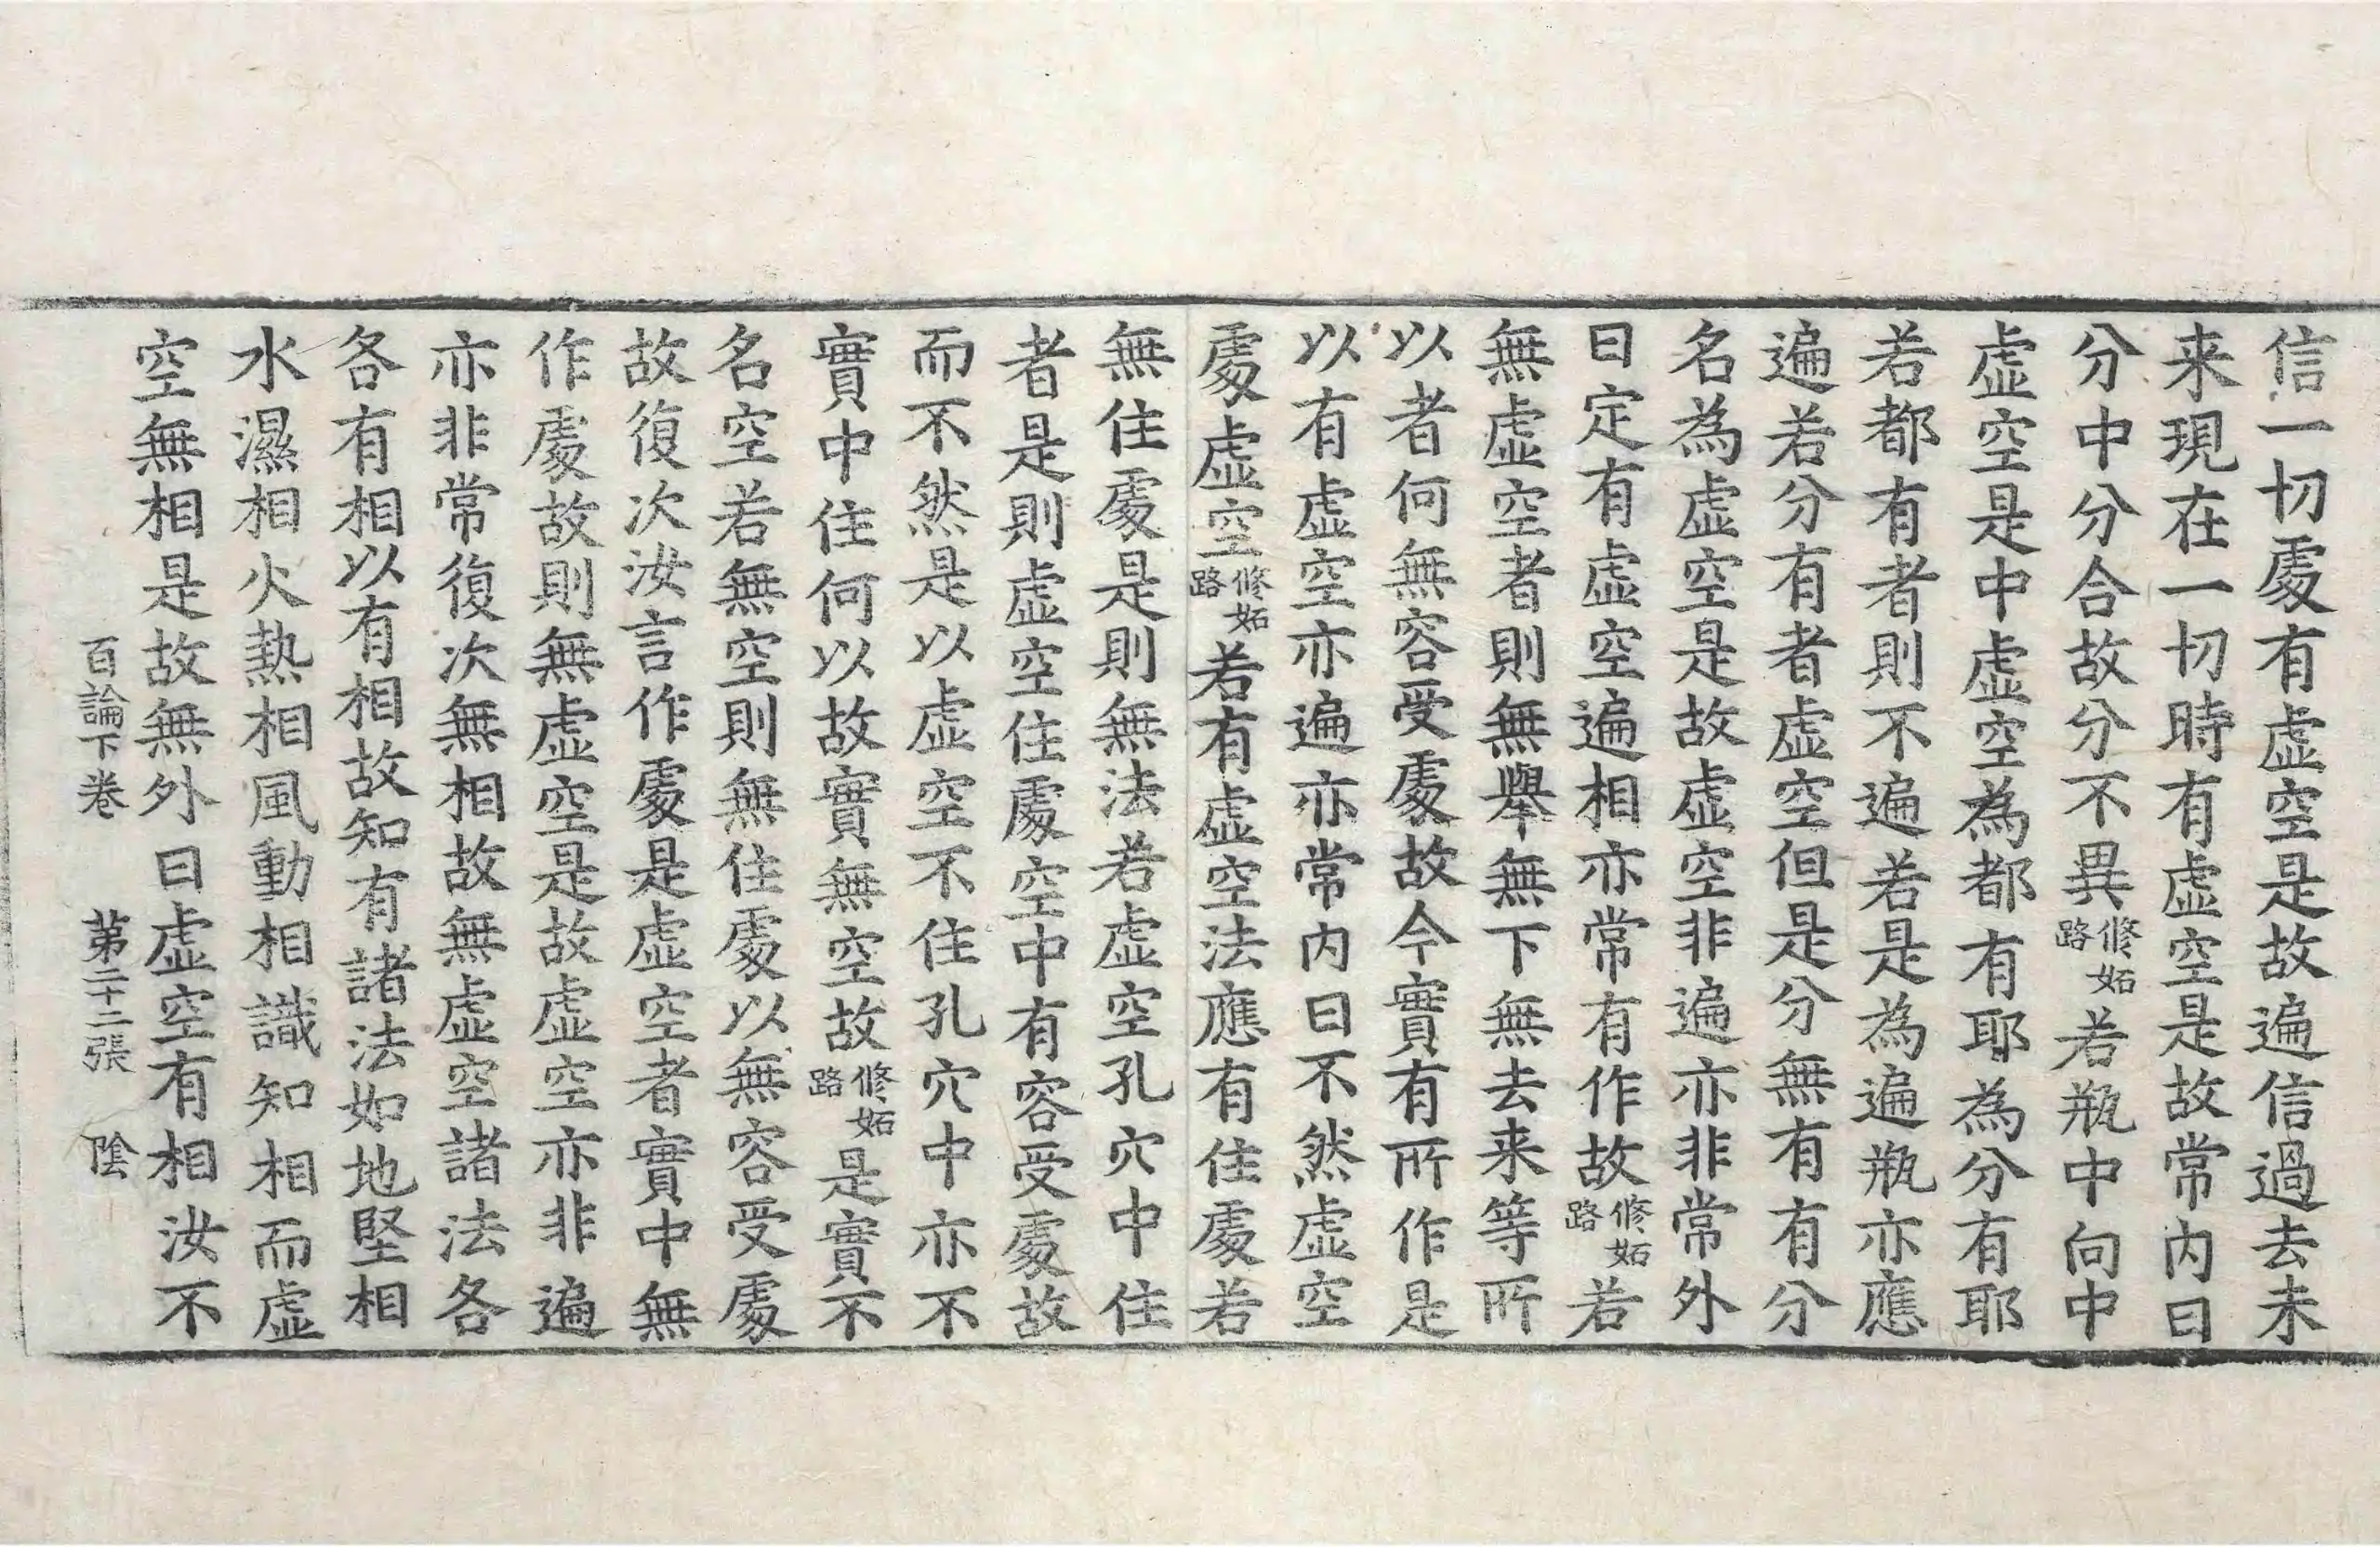 信一切處有虛空是故遍信過去未
来現在一切時有虛空是故常内曰
分中分合故分不異修妬路若瓶中向中
虛空是中虛空為都有耶為分有耶
若都有者則不遍若是為遍瓶亦應
遍若分有者虛空但是分無有有分
名為虛空是故虛空非遍亦非常外
曰定有虛空遍相亦常有作故修妬路若
無虛空者則無舉無下無去来等所
以者何無容受處故今實有所作是
以有虛空亦遍亦常内曰不然虛空
處虛空修妬路若有虛空法應有住處若
無住處是則無法若虛空孔穴中住
者是則虛空住處空中有容受處故
而不然是以虛空不住孔穴中亦不
實中住何以故實無空故修妬路是實不
名空若無空則無住處以無容受處
故復次汝言作處是虛空者實中無
作處故則無虛空是故虛空亦非遍
亦非常復次無相故無虛空諸法各
各有相以有相故知有諸法如地堅相
水濕相火熱相風動相識知相而虛
空無相是故無外曰虛空有相汝不
百論下卷 第二十二張 陰